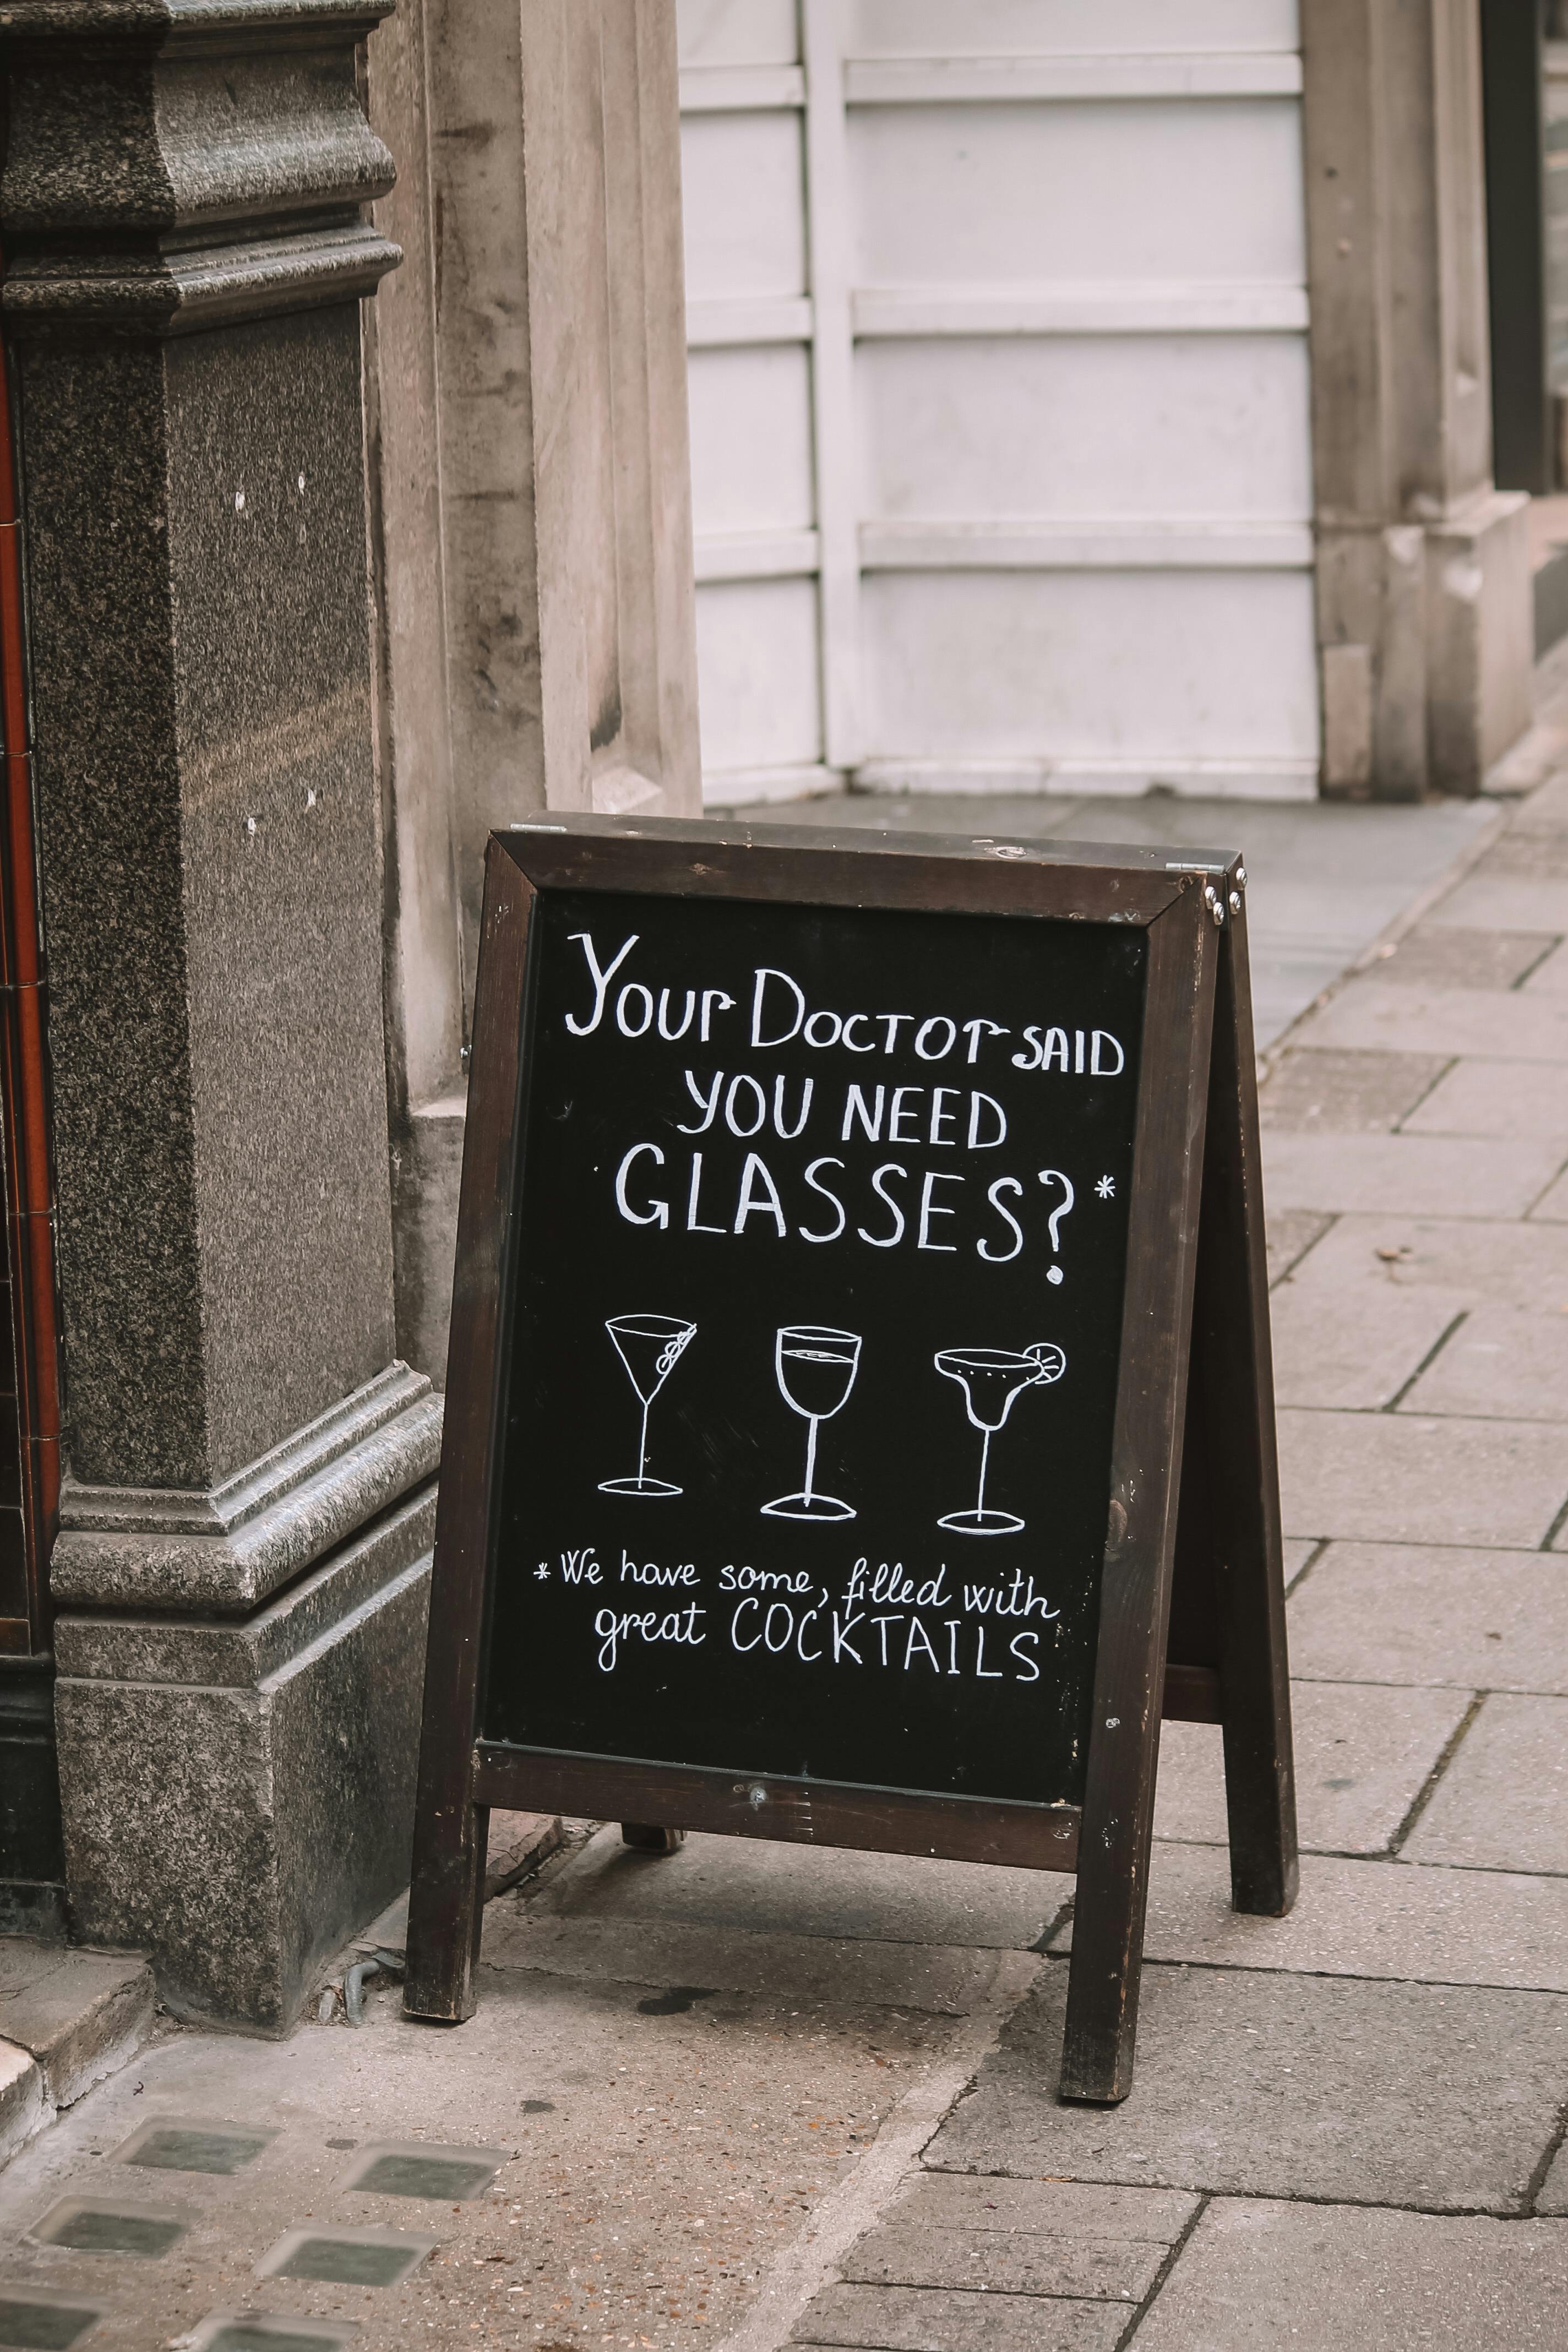 Your Doctor SAID
YOU NEED
GLASSES?*
* We have some, filled with
great COCKTAILS